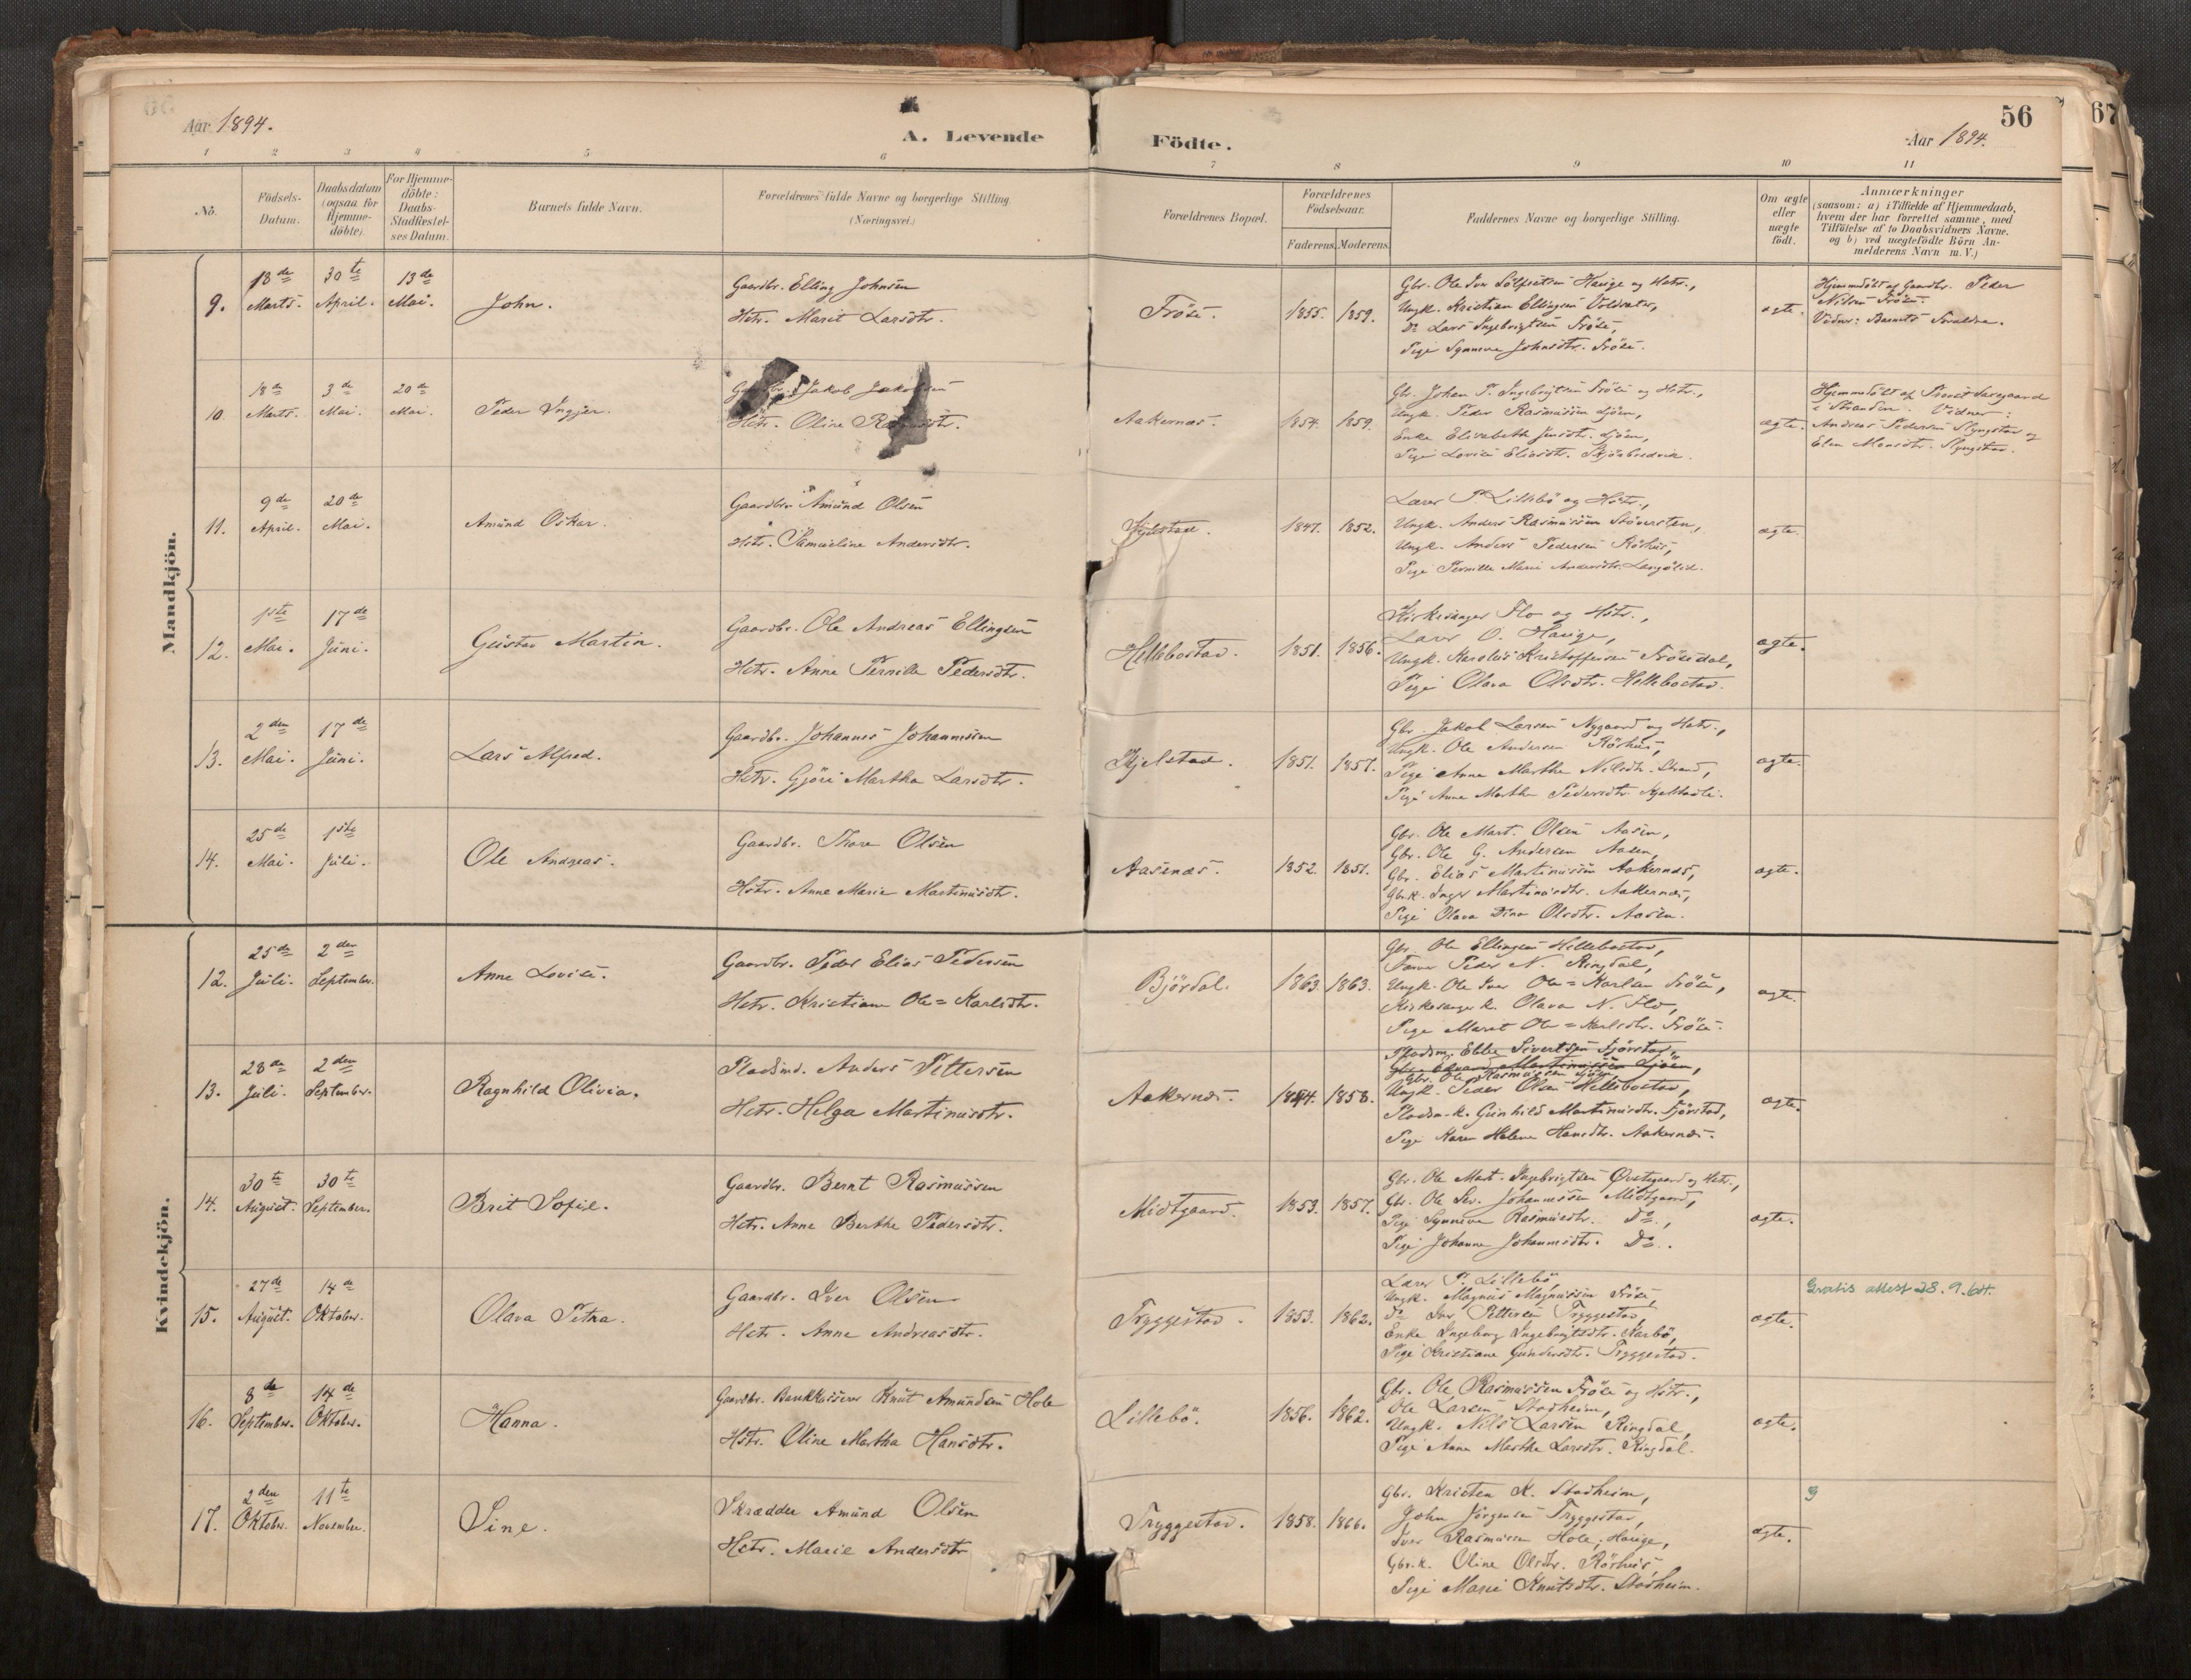 Aar 1894.
A. Levende
Födte.
56
67
Aar 1894.
1 2 3 4 5 6 7 8 9 10 11
No.
Födsels-
Datum.
Daabsdatum
(ogsaa for
Hjemme-
döbte).
For Hjemme-
döbte:
Daabs-
Stadfæstel-
ses Datum.
Barnets fulde Navn.
Forældrenes fulde Navne og borgerlige Stilling.
(Næringsvei.)
Forældrenes Bopæl.
Forældrenes
Födselsaar.
Faderens. Moderens.
Faddernes Navne og borgerlige Stilling.
Om ægte
eller
uægte
födt.
Anmærkninger
(saasom: a) i Tilfælde af Hjemmedaab,
hvem der har forrettet samme, med
Tilföielse af to Daabsvidners Navne.
og b) ved uægtefödte Börn An-
melderens Navn m. V.)
Mandkjön.
9.
18de
Marts.
30te
April.
13de
Mai.
John.
Gaardbr. Elling Johnsen
Hstr. Marit Larsdtr.
Fröse.
1855. 1859.
Gbr. Ole Iver Hauge og Hstr.,
Ungk. Kristian Ellingsen Voldsæter,
Do Lars Ingebrigtsen Fröse,
Pige Synneve Johnsdtr. Fröse.
ægte.
Hjemmedöbt af Gaardbr. Peder
Nilsen Fröse.
Vidner: Barnets Forældre.
10.
18de
Marts.
3de
Mai.
20de
Mai.
Peder Ingjer.
Jakob Jakobsen
Hstr. Oline
Aakernæs.
1854. 1859.
Gbr. Johan P. Ingebrigtsen Fröse og Hstr.,
Ungk. Peder Rasmussen Sjöen,
Enke Elisabeth Jensdtr. Sjöen,
Pige Lovise Eliasdtr.
ægte.
Hjemmedöbt af Provst
i Stranden. Vidner:
Andreas Pedersen Slyngstad og
Elen Monsdtr. Slyngstad.
11.
9de
April.
20de
Mai.
Amund Oskar.
Gaardbr. Amund Olsen
Hstr. Samueline Andersdtr.
Kjelstad.
1847. 1852.
Lærer P. Lillebö og Hstr.,
Ungk. Anders Rasmussen
Ungk. Anders Pedersen Röshus,
Pige Pernille Marie Andersdtr.
ægte.
12.
1ste
Mai.
17de
Juni.
Gustav Martin.
Gaardbr. Ole Andreas Ellingsen
Hstr. Anne Pernille Pedersdtr.
Hellebostad.
1851. 1856.
Kirkesanger Flo og Hstr.,
Lærer O. Hauge,
Ungk. Karolus Kristoffersen Frösedal,
Pige Olava Olsdtr. Hellebostad.
ægte.
13.
2den
Mai.
17de
Juni.
Lars Alfred.
Gaardbr. Johannes Johannessen
Hstr. Gjöri Martha Larsdtr.
Kjelstad.
1851. 1857.
Gbr. Jakob Larsen Nygaard og Hstr.,
Ungk. Ole Andersen Röshus,
Pige Anne Marthe Nilsdtr. Strand,
Pige Anne Marthe Pedersdtr. Kjelstadli.
ægte.
14.
25de
Mai.
1ste
Juli.
Ole Andreas.
Gaardbr. Thore Olsen
Hstr. Anne Marie Martinusdtr.
Aasenæs.
1852. 1851.
Gbr. Ole Mart. Olsen Aasen,
Gbr. Ole G. Andersen Aasen,
Gbr. Elias Martinussen Aakernæs,
Gbr.k. Inger Martinusdtr. Aakernæs,
Pige Olava Dina Olsdtr. Aasen.
ægte.
Kvindekjön.
12.
25de
Juli.
2den
September.
Anne Lovise.
Gaardbr. Peder Elias Pedersen
Hstr. Kristiane Ole=Karlsdtr.
Björdal.
1863. 1863.
Gbr. Ole Ellingsen Hellebostad,
Farver Peder N. Ringdal,
Ungk. Ole Iver Ole=Karlsen Fröse,
Kirkesanger k. Olava N. Flo,
Pige Marit Ole=Karlsdtr. Fröse.
ægte.
13.
28de
Juli.
2den
September.
Ragnhild Olivia.
Pladsmd. Anders Pettersen
Hstr. Helga Martinusdtr.
Aakernæs.
1844. 1858.
Pladsm. Ebbe Sivertsen Sjörstad,
Gbr. Edvard Martinussen Sjöen,
Gbr. Ole Rasmussen Sjöen,
Ungk. Peder Olsen Hellebostad,
Pladsm.k. Gunhild Martinusdtr. Sjörstad,
Pige Karen Helene Hansdtr. Aakernæs.
ægte.
14.
30te
August.
30te
September.
Brit Sofie.
Gaardbr. Bernt Rasmussen
Hstr. Anne Berthe Pedersdtr.
Midtgaard.
1853. 1857.
Gbr. Ole Mart. Ingebrigtsen Øvstegaard og Hstr.,
Gbr. Ole Sev. Johannessen Midtgaard,
Pige Synneve Rasmusdtr. Do.,
Pige Johanne Johannesdtr. Do.
ægte.
15.
27de
August.
14de
Oktober.
Olava Petra.
Gaardbr. Iver Olsen
Hstr. Anne Andreasdtr.
Tryggestad.
1853. 1862.
Lærer P. Lillebö,
Ungk. Magnus Magnussen Fröse,
Do Iver Pettersen Tryggestad,
Enke Ingeborg Ingebrigtsdtr. Karbö,
Pige Kristiane Gundersdtr. Tryggestad.
ægte.
Gratis attest 28.9.64.
16.
8de
September.
14de
Oktober.
Hanna.
Gaardbr. Bankkasserer Knut Amundsen Hole
Hstr. Oline Martha Hansdtr.
Lillebö.
1856. 1862.
Gbr. Ole Rasmussen Fröse og Hstr.,
Ole Larsen Stadheim,
Ungk. Nils Larsen Ringdal,
Pige Anne Marthe Larsdtr. Ringdal.
ægte.
17.
2den
Oktober.
11te
November.
Sine.
Skrædder Amund Olsen
Hstr. Marie Andersdtr.
Tryggestad.
1858. 1866.
Gbr. Kristen K. Stadheim,
John Jörgensen Tryggestad,
Iver Rasmussen Hole, Hauge,
Gbr.k. Oline Olsdtr. Röshus,
Pige Marie Knutsdtr. Stadheim.
ægte.